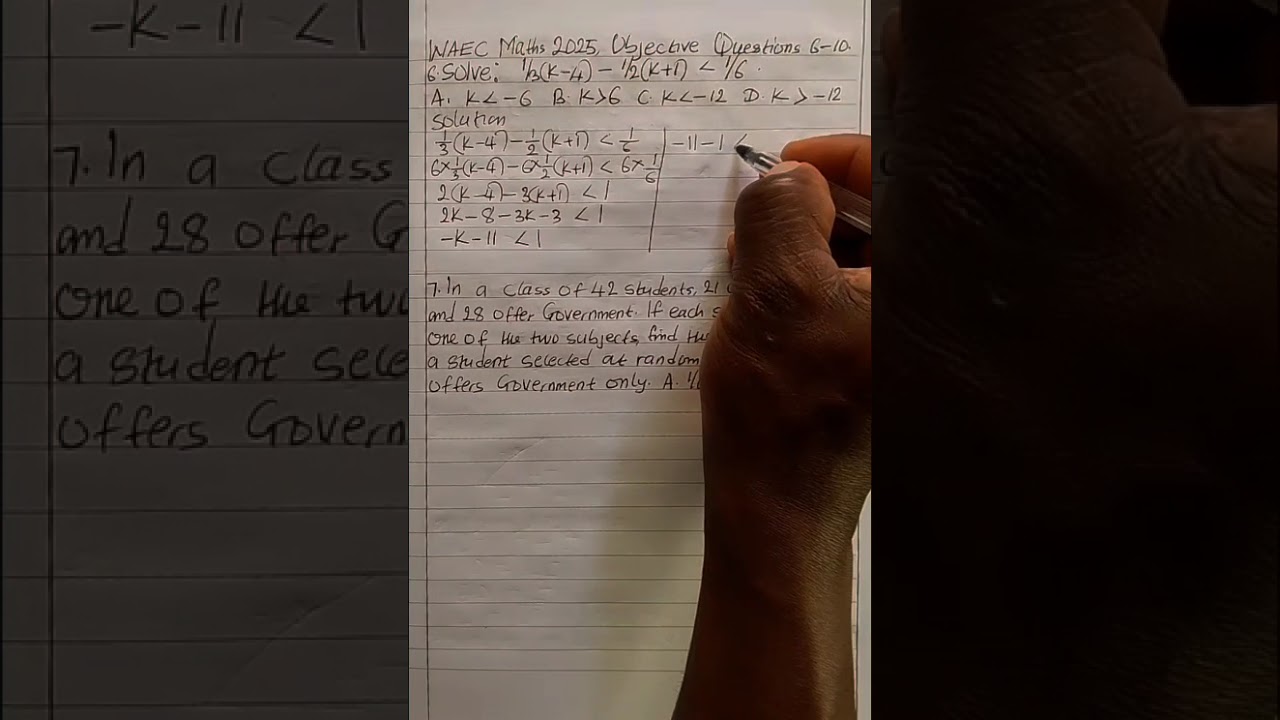 WAEC Maths 2025, Objective Questions 6-10.
6. Solve: 1/3(k-4) - 1/2(k+1) < 1/6.
A. k < -6 B. k > 6 C. k < -12 D. k > -12
Solution
1/3(k-4) - 1/2(k+1) < 1/6
6×1/3(k-4) - 6×1/2(k+1) < 6×1/6
2(k-4) - 3(k+1) < 1
2k - 8 - 3k - 3 < 1
-k - 11 < 1
-11 - 1 <
7. In a class of 42 students, 21
and 28 offer Government. If each
one of the two subjects, find the
a student selected at random
offers Government only. A.
-k-11 < 1
7. In a class
and 28 offer
one of the two
a student
offers